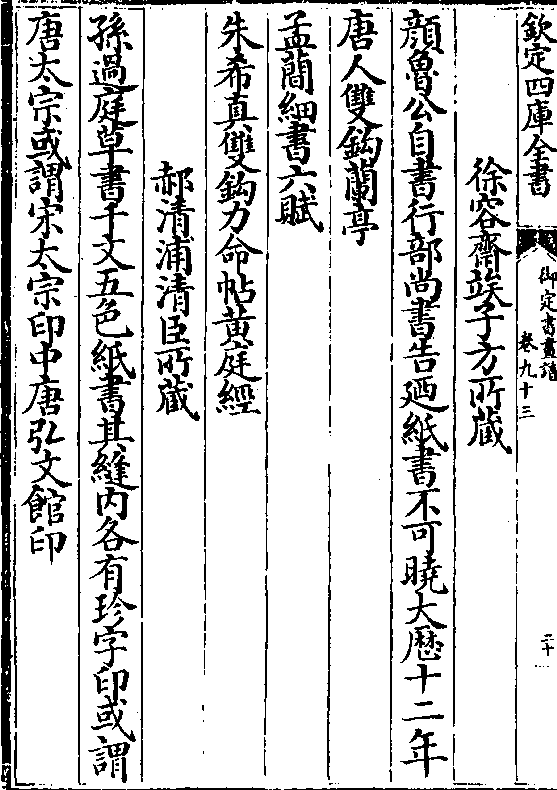 欽定四庫全書
御定書畫譜
卷九十三
二十
徐容齋琰子方所蔵
顔魯公自書行部尚書告廼紙書不可曉大厯十二年
唐人雙鈎蘭亭
孟蕳細書六賦
朱希真雙鈎力命帖黄庭經
郝清浦清臣所蔵
孫過庭草書千文五色紙書其縫内各有珍字印或謂
唐太宗或謂宋太宗印中唐弘文館印